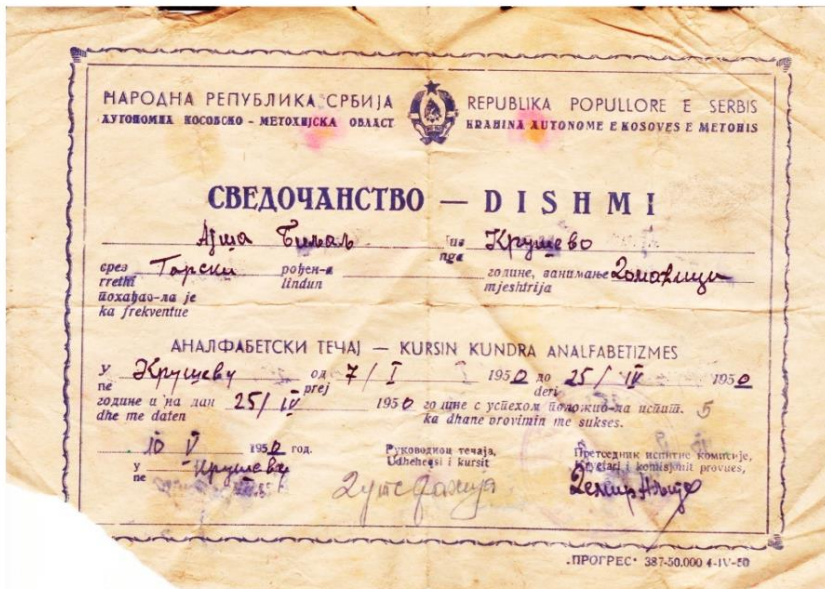 НАРОДНА РЕПУБЛИКА СРБИЈА
АУТОНОМНА КОСОВСКО - МЕТОХИЈСКА ОБЛАСТ
REPUBLIKA POPULLORE E SERBIS
KRAHINA AUTONOME E KOSOVES E METOHIS
СВЕДОЧАНСТВО — DISHMI
Ајша из Крушево
nga
срез Горски рођен-а године, занимање домаћица
rrethi lindun mjeshtrija
похађао-ла је
ka frekventue
АНАЛФАБЕТСКИ ТЕЧАЈ — KURSIN KUNDRA ANALFABETIZMES
У Крушеву од 7/I 1950 до 25/IV 1950
ne prej deri
године и на дан 25/IV 1950 године с успехом положио-ла испит. 5
dhe me daten ka dhane provimin me sukses.
10 V 1950 год.
у Крушеву
ne
Руководиоц течаја,
Udheheqsi i kursit
Претседник испитне комисије,
Kryetari i komisjonit provues,
„ПРОГРЕС“ 387-50.000 4-IV-50